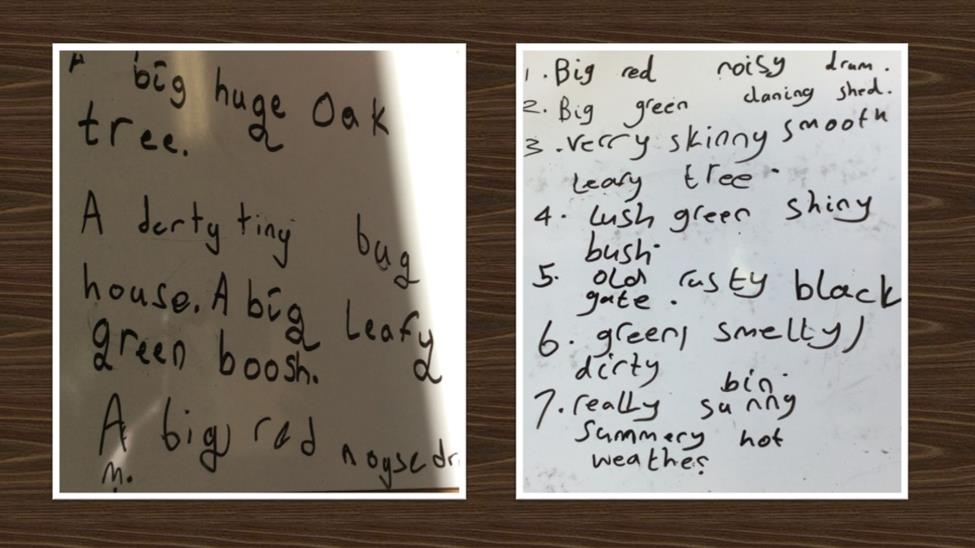 A big huge Oak
tree.
A derty tiny bug
house. A big Leafy
green boosh.
A big, red noyse dr
m.
1. Big red noisy drum.
2. Big green claning shed.
3. verry skinny smooth
leafy tree.
4. lush green shiny
bush.
5. old rusty black
gate.
6. green, smelty,
dirty bin.
7. really sunny
summery hot
weather